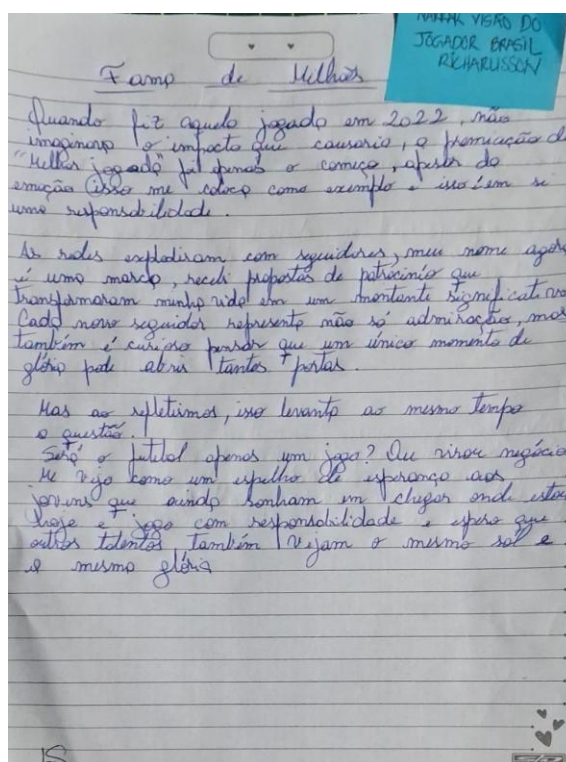 NARRAR VISÃO DO
JOGADOR BRASIL
RICHARLISSON
Fama de Milhões
Quando fiz aquela jogada em 2022, não
imaginava o impacto que causaria, a premiação de
"Melhor jogada" foi apenas o começo, apesar da
emoção isso me coloca como exemplo e isso tem si
uma responsabilidade.
As redes explodiram com seguidores, meu nome agora
é uma marca, recebi propostas de patrocínio que
transformaram minha vida em um montante significativo
Cada novo seguidor representa não só admiração, mas
também é curioso pensar que um único momento de
glória pode abrir tantas portas.
Mas ao refletirmos, isso levanta ao mesmo tempo
a questão.
Será o futebol apenas um jogo? Ou virou negócio
Me vejo como um espelho de esperança aos
jovens que ainda sonham em chegar onde estou
hoje e jogo com responsabilidade e espero que
outros talentos também vejam o mesmo sol e
a mesma glória